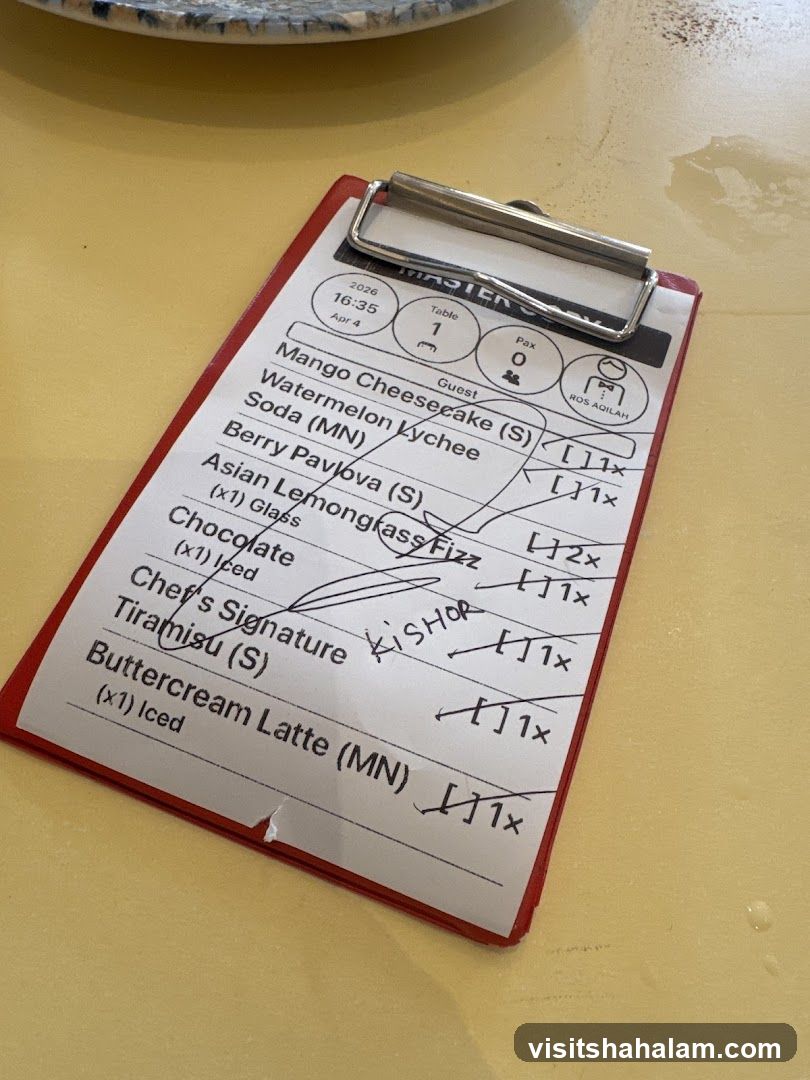 MASTER COPY
2026
16:35
Apr 4
Table
1
Pax
0
ROS AQILAH
Guest
Mango Cheesecake (S) [ ] 1x
Watermelon Lychee [ ] 1x
Soda (MN)
Berry Pavlova (S) [ ] 2x
Asian Lemongrass Fizz [ ] 1x
(x1) Glass
Chocolate [ ] 1x
(x1) Iced
KiSHOR
Chef's Signature [ ] 1x
Tiramisu (S)
Buttercream Latte (MN) [ ] 1x
(x1) Iced
visitshahalam.com